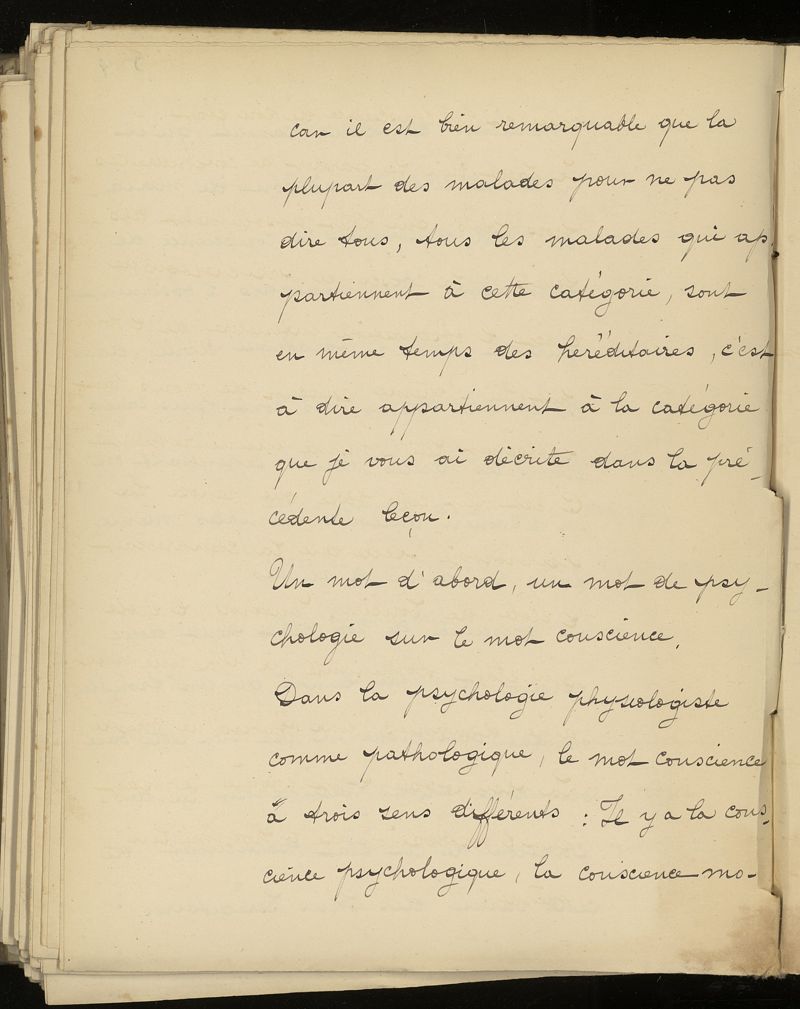 car il est bien remarquable que la
plupart des malades pour ne pas
dire tous, tous les malades qui ap-
partiennent à cette catégorie, sont
en même temps des heréditaires, c'est
à dire appartiennent à la catégorie
que je vous ai décrite dans la pré-
cédente leçon.
Un mot d'abord, un mot de psy-
chologie sur le mot conscience.
Dans la psychologie physiologiste
comme pathologique, le mot conscience
à trois sens différents : Il y a la cons-
cience psychologique, la conscience mo-